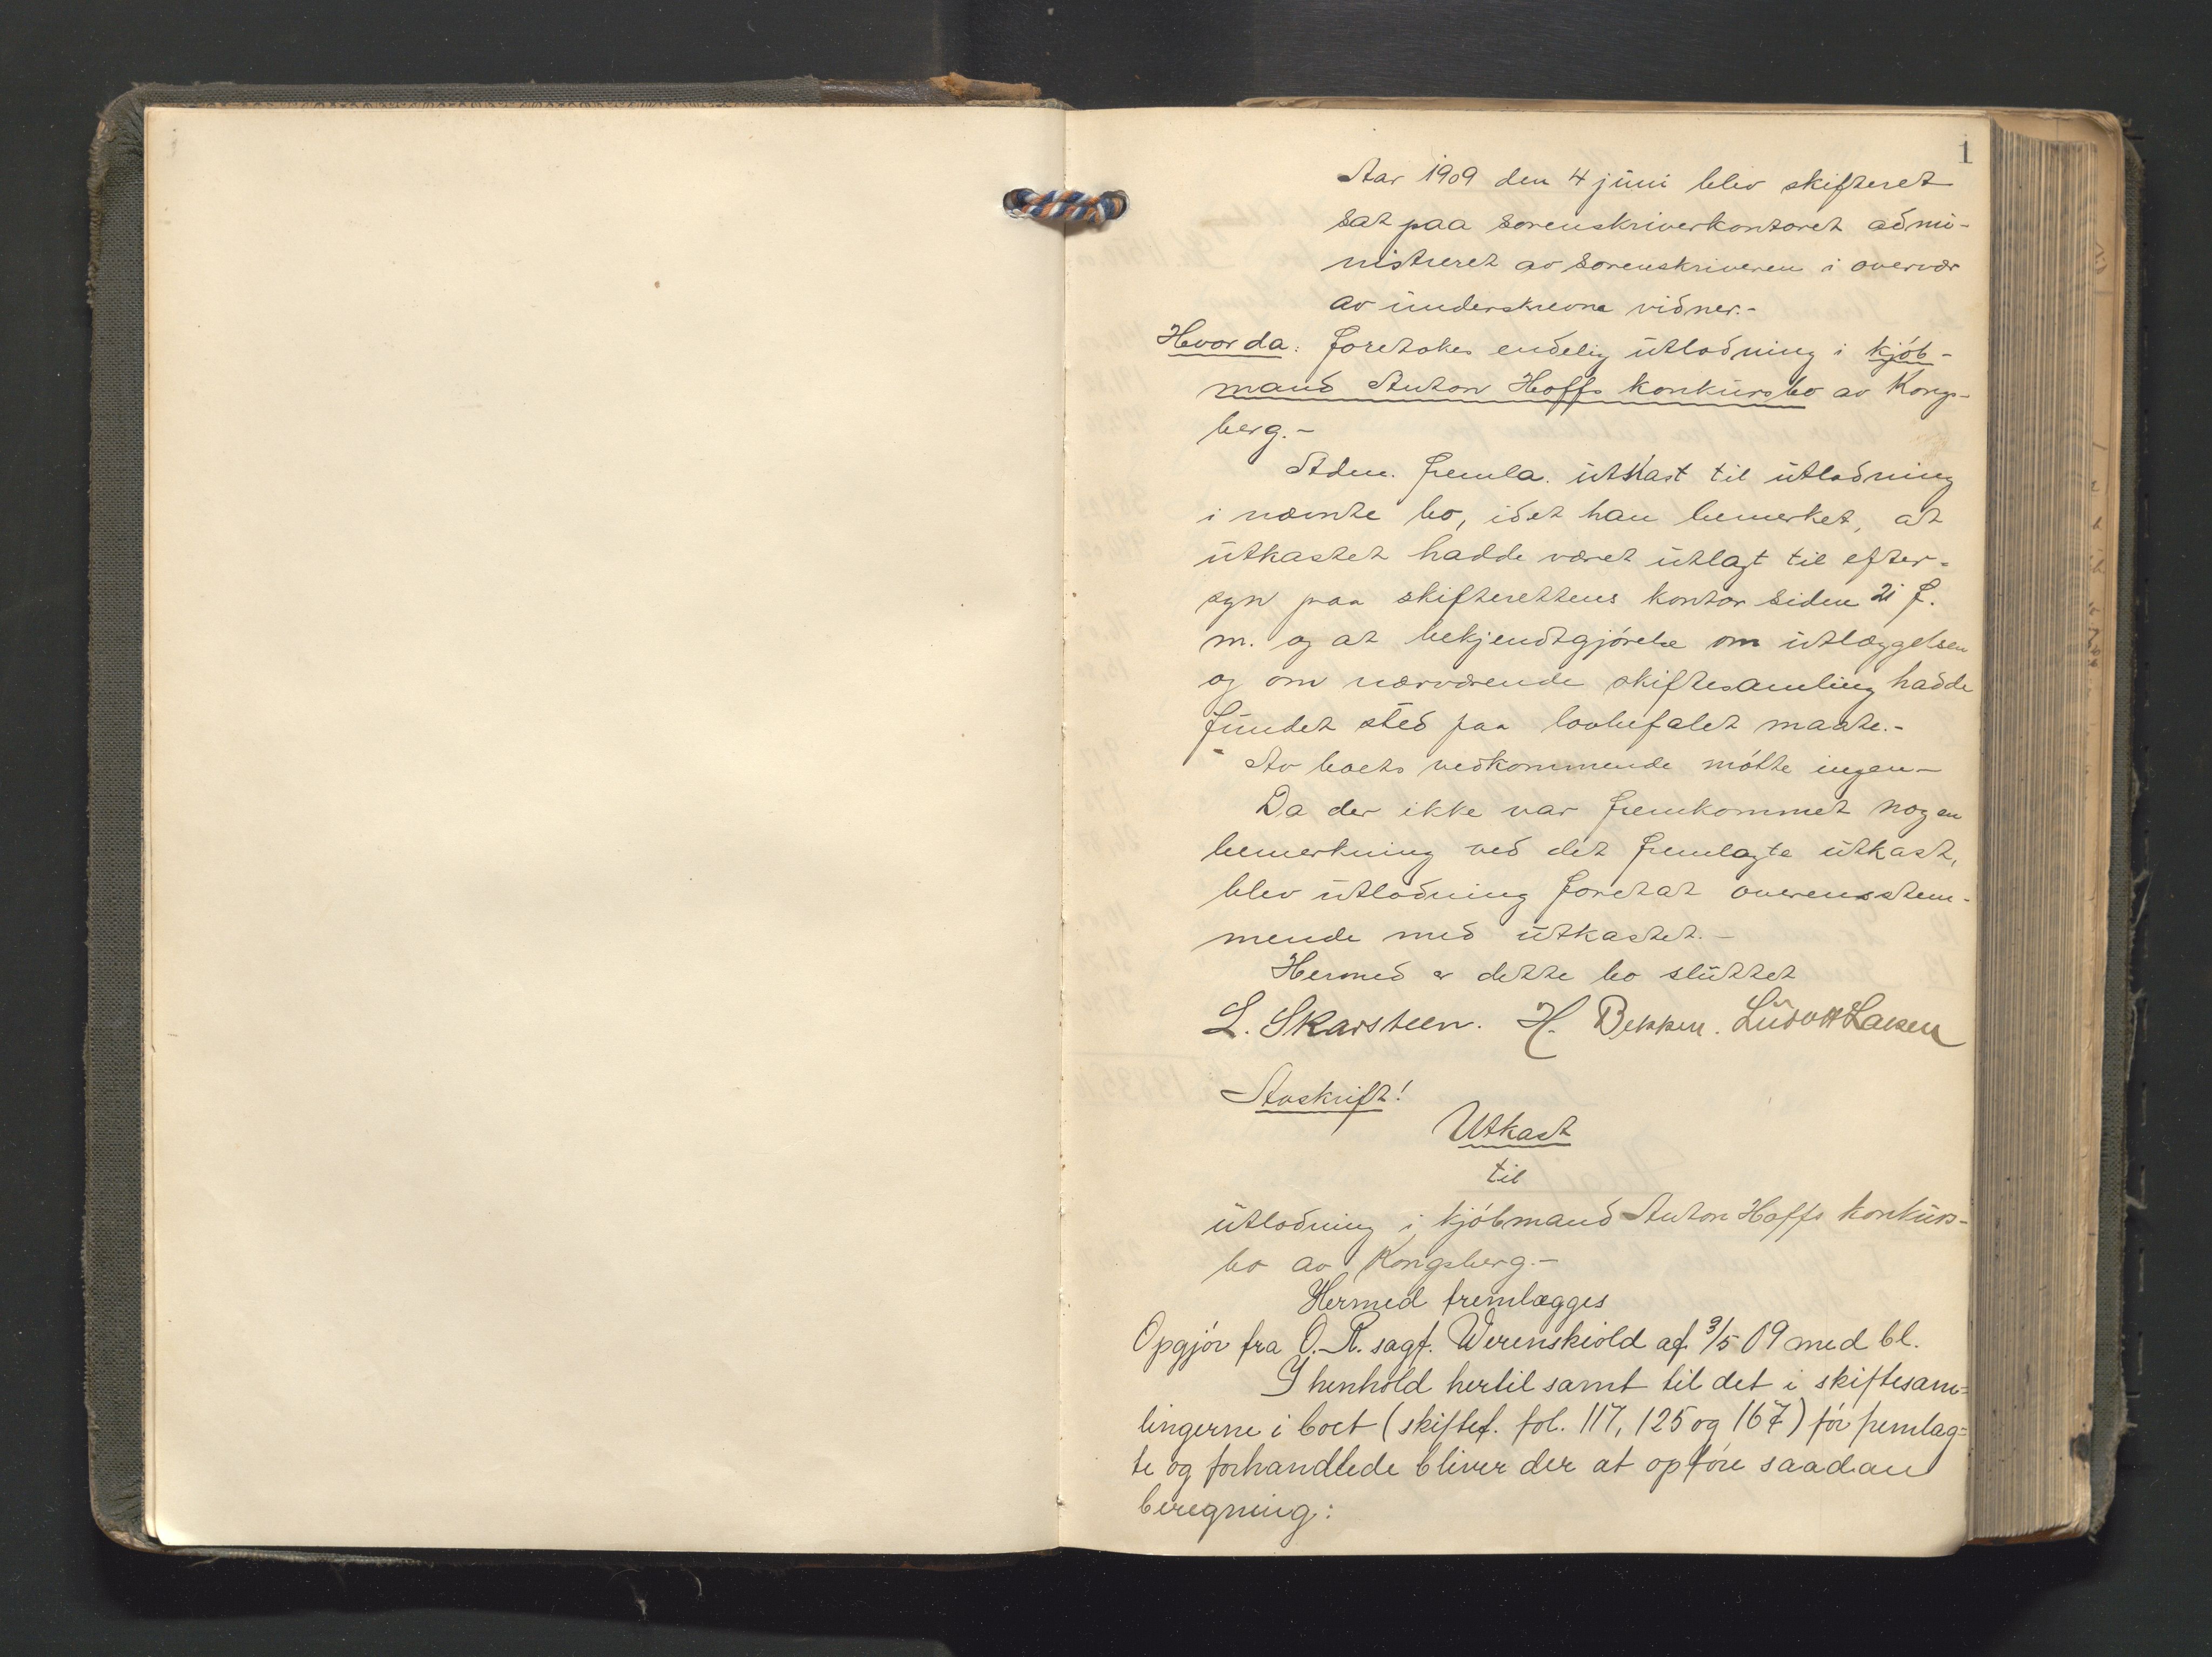 1
Aar 1909 den 4 juni blev skifteret
sat paa sorenskriverkontoret admi-
nistreret av sorenskriveren i overvær
av underskrevne vidner.-
Hvor da: foretokes endelig utlodning i kjøb-
mand Anton Hoffs konkursbo av Kongs-
berg.-
Adm. fremla. utkast til utlodning
i nævnte bo, idet han bemerket, at
utkastet hadde været utlagt til efter-
syn paa skifterettens kontor siden 21 f.
m. og at bekjendtgjørelse om utlæggelsen
og om nærværende skiftesamling hadde
fundet sted paa lovbefalet maate.-
Av boets vedkommende møtte ingen-
Da der ikke var fremkommet nogen
bemerkning ved det fremlagte utkast,
blev utlodning foretat overensstem-
mende med utkastet.-
Hermed er dette bo sluttet
L. Skarsteen. H. Bekken. Ludv Larsen
Avskrift!
Utkast
til
utlodning i kjøbmand Anton Hoffs konkurs-
bo av Kongsberg.-
Hermed fremlægges
Opgjør fra O.R. sagf. Werenskiold af 3/5 09 med bl.
I henhold hertil samt til det i skiftesam=
lingerne i boet (skiftef. fol. 117, 125 og 167) før fremlag=
te og forhandlede bliver der at opføre saadan
beregning: